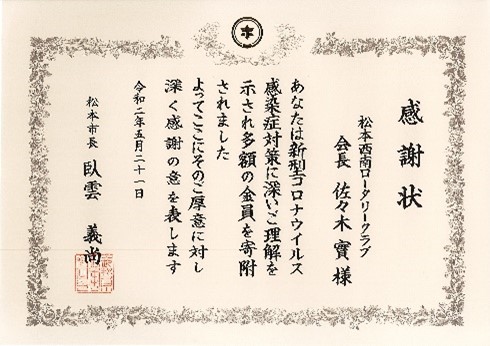 感謝状
松本西南ロータリークラブ
会長 佐々木 實 様
あなたは新型コロナウイルス
感染症対策に深いご理解を
示され多額の金員を寄附
されました
よってここにそのご厚意に対し
深く感謝の意を表します
令和二年五月二十一日
松本市長 臥雲 義尚